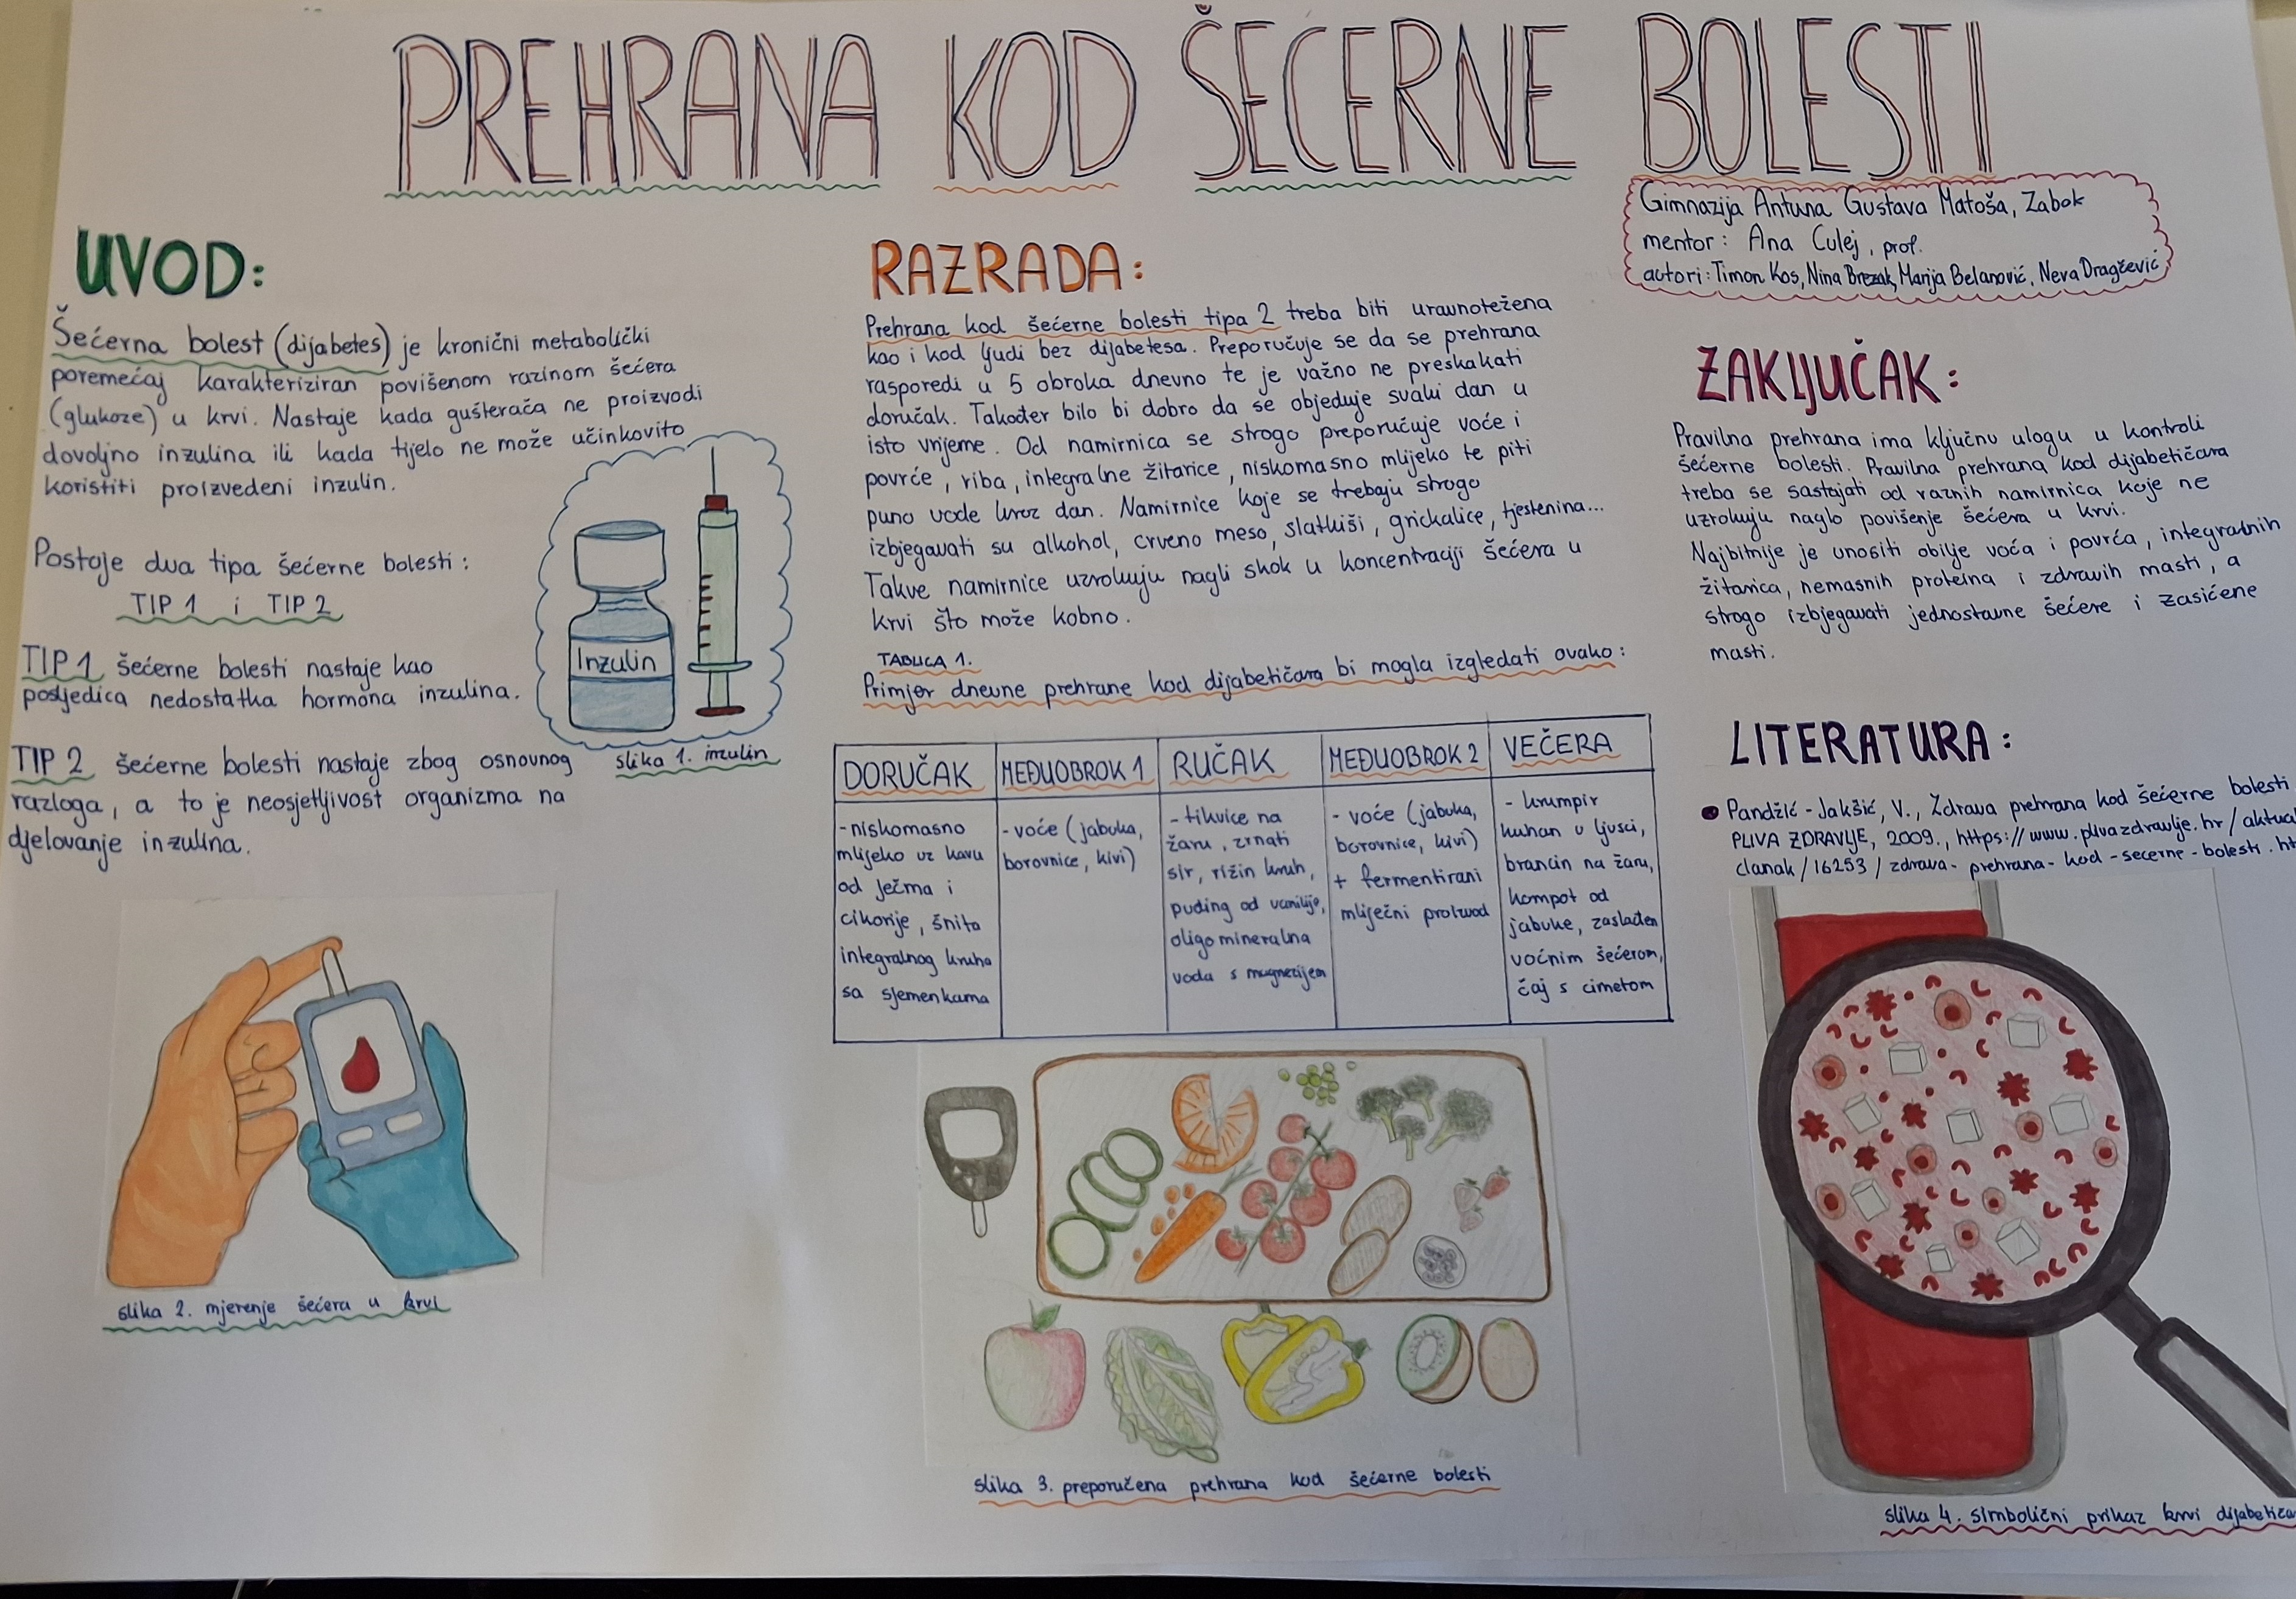 PREHRANA KOD ŠECERNE BOLESTI
Gimnazija Antuna Gustava Matoša, Zabok
mentor: Ana Culej, prof.
autori: Timon Kos, Nina Brezak, Marija Belanović, Neva Dragčević
UVOD:
Šećerna bolest (dijabetes) je kronični metabolički
poremećaj karakteriziran povišenom razinom šećera
(glukoze) u krvi. Nastaje kada gušterača ne proizvodi
dovoljno inzulina ili kada tijelo ne može učinkovito
koristiti proizvedeni inzulin.
Postoje dva tipa šećerne bolesti:
TIP 1 i TIP 2
TIP 1 šećerne bolesti nastaje kao
posljedica nedostatka hormona inzulina.
TIP 2 šećerne bolesti nastaje zbog osnovnog
razloga, a to je neosjetljivost organizma na
djelovanje inzulina.
Inzulin
slika 1. inzulin
slika 2. mjerenje šećera u krvi
RAZRADA:
Prehrana kod šećerne bolesti tipa 2 treba biti uravnotežena
kao i kod ljudi bez dijabetesa. Preporučuje se da se prehrana
rasporedi u 5 obroka dnevno te je važno ne preskakati
doručak. Također bilo bi dobro da se objeduje svaki dan u
isto vrijeme. Od namirnica se strogo preporučuje voće i
povrće, riba, integralne žitarice, niskomasno mlijeko te piti
puno vode kroz dan. Namirnice koje se trebaju strogo
izbjegavati su alkohol, crveno meso, slatkiši, grickalice, tjestenina...
Takve namirnice uzrokuju nagli skok u koncentraciji šećera u
krvi što može kobno.
TABLICA 1.
Primjer dnevne prehrane kod dijabetičara bi mogla izgledati ovako:
DORUČAK
-niskomasno
mlijeko uz kavu
od ječma i
cikorije, šnita
integralnog kruha
sa sjemenkama
MEĐUOBROK 1
-voće (jabuka,
borovnice, kivi)
RUČAK
-tikvice na
žaru, zrnati
sir, rižin kruh,
puding od vanilije,
oligomineralna
voda s magnezijem
MEĐUOBROK 2
- voće (jabuka,
borovnice, kivi)
+ fermentirani
mliječni proizvod
VEČERA
- krumpir
kuhan u ljusci,
brancin na žaru,
kompot od
jabuke, zaslađen
voćnim šećerom,
čaj s cimetom
slika 3. preporučena prehrana kod šećerne bolesti
ZAKLJUČAK:
Pravilna prehrana ima ključnu ulogu u kontroli
šećerne bolesti. Pravilna prehrana kod dijabetičara
treba se sastajati od raznih namirnica koje ne
uzrokuju naglo povišenje šećera u krvi.
Najbitnije je unositi obilje voća i povrća, integralnih
žitarica, nemasnih proteina i zdravih masti, a
strogo izbjegavati jednostavne šećere i zasićene
masti.
LITERATURA:
Pandžić-Jakšić, V., Zdrava prehrana kod šećerne bolesti
PLIVA ZDRAVLJE, 2009., https://www.plivazdravlje.hr/aktual
clanak/16253/zdrava-prehrana-kod-secerne-bolesti.ht
slika 4. simbolični prikaz krvi dijabetiča